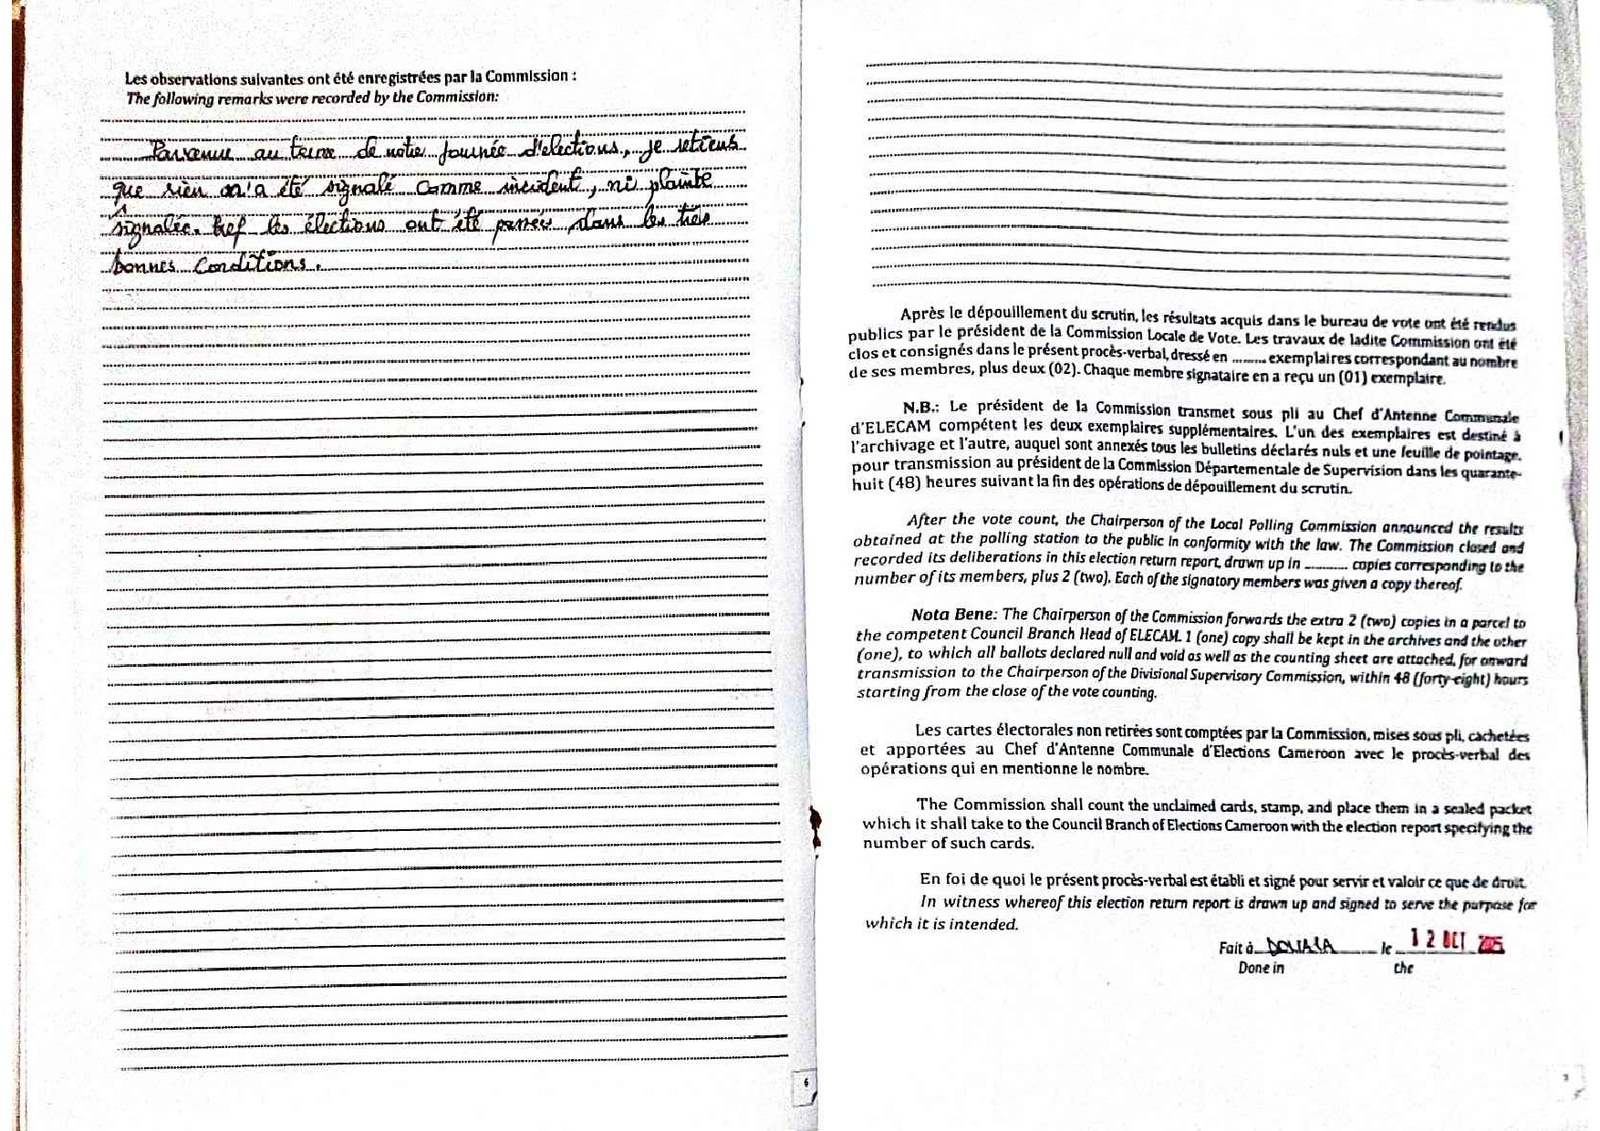 Les observations suivantes ont été enregistrées par la Commission :
The following remarks were recorded by the Commission:
Parvenue au terme de notre journée d'elections, je retiens
que rien n'a été signalé comme incident, ni plainte
signalée. Bref les élections ont été passée dans les très
bonnes conditions.
6
Après le dépouillement du scrutin, les résultats acquis dans le bureau de vote ont été rendus
publics par le président de la Commission Locale de Vote. Les travaux de ladite Commission ont été
clos et consignés dans le présent procès-verbal, dressé en ......... exemplaires correspondant au nombre
de ses membres, plus deux (02). Chaque membre signataire en a reçu un (01) exemplaire.
N.B.: Le président de la Commission transmet sous pli au Chef d'Antenne Communale
d'ELECAM compétent les deux exemplaires supplémentaires. L'un des exemplaires est destiné à
l'archivage et l'autre, auquel sont annexés tous les bulletins déclarés nuls et une feuille de pointage,
pour transmission au président de la Commission Départementale de Supervision dans les quarante-
huit (48) heures suivant la fin des opérations de dépouillement du scrutin.
After the vote count, the Chairperson of the Local Polling Commission announced the results
obtained at the polling station to the public in conformity with the law. The Commission closed and
recorded its deliberations in this election return report, drawn up in ........... copies corresponding to the
number of its members, plus 2 (two). Each of the signatory members was given a copy thereof.
Nota Bene: The Chairperson of the Commission forwards the extra 2 (two) copies in a parcel to
the competent Council Branch Head of ELECAM. 1 (one) copy shall be kept in the archives and the other
(one), to which all ballots declared null and void as well as the counting sheet are attached, for onward
transmission to the Chairperson of the Divisional Supervisory Commission, within 48 (forty-eight) hours
starting from the close of the vote counting.
Les cartes électorales non retirées sont comptées par la Commission, mises sous pli, cachetées
et apportées au Chef d'Antenne Communale d'Elections Cameroon avec le procès-verbal des
opérations qui en mentionne le nombre.
The Commission shall count the unclaimed cards, stamp, and place them in a sealed packet
which it shall take to the Council Branch of Elections Cameroon with the election report specifying the
number of such cards.
En foi de quoi le présent procès-verbal est établi et signé pour servir et valoir ce que de droit.
In witness whereof this election return report is drawn up and signed to serve the purpose for
which it is intended.
Fait à DOUALA le 12 OCT 2025
Done in the